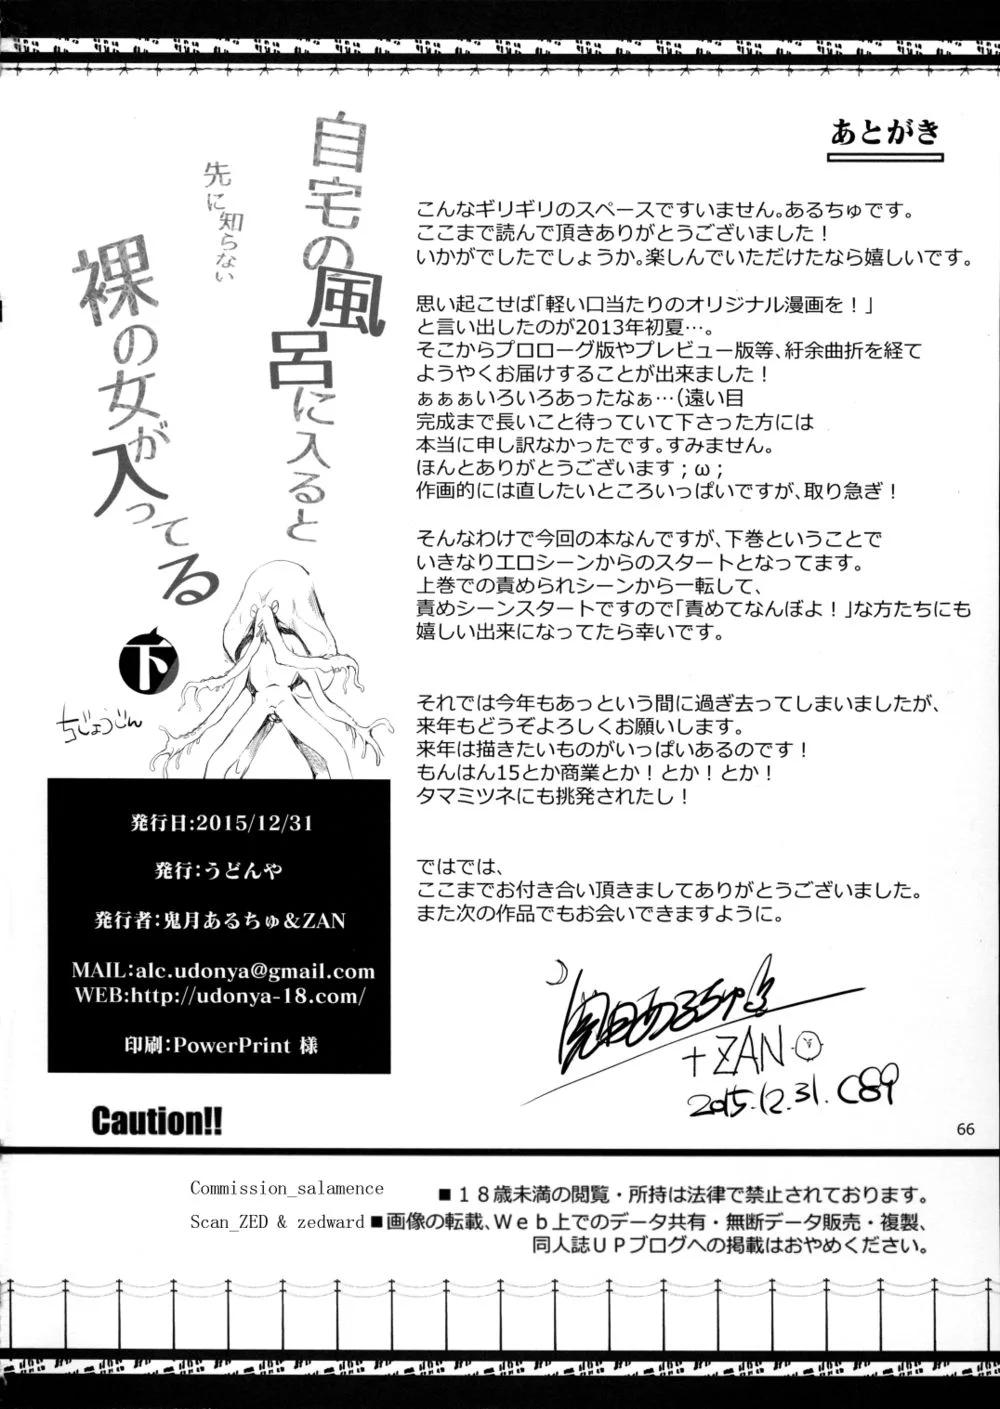 あとがき
こんなギリギリのスペースですいません。あるちゅです。
ここまで読んで頂きありがとうございました！
いかがでしたでしょうか。楽しんでいただけたなら嬉しいです。
思い起こせば「軽い口当たりのオリジナル漫画を！」
と言い出したのが2013年初夏…。
そこからプロローグ版やプレビュー版等、紆余曲折を経て
ようやくお届けすることが出来ました！
ぁぁぁいろいろあったなぁ…（遠い目
完成まで長いこと待っていて下さった方には
本当に申し訳なかったです。すみません。
ほんとありがとうございます；ω；
作画的には直したいところいっぱいですが、取り急ぎ！
そんなわけで今回の本なんですが、下巻ということで
いきなりエロシーンからのスタートとなってます。
上巻での責められシーンから一転して、
責めシーンスタートですので「責めてなんぼよ！」な方たちにも
嬉しい出来になってたら幸いです。
それでは今年もあっという間に過ぎ去ってしまいましたが、
来年もどうぞよろしくお願いします。
来年は描きたいものがいっぱいあるのです！
もんはん15とか商業とか！とか！とか！
タマミツネにも挑発されたし！
ではでは、
ここまでお付き合い頂きましてありがとうございました。
また次の作品でもお会いできますように。
鬼月あるちゅ
+ZAN
2015.12.31. C89
66
自宅の風呂に入ると
先に知らない
裸の女が入ってる
下
ちじょうじん
発行日:2015/12/31
発行:うどんや
発行者:鬼月あるちゅ&ZAN
MAIL:alc.udonya@gmail.com
WEB:http://udonya-18.com/
印刷:PowerPrint 様
Caution!!
Commission_salamence
Scan_ZED & zedward
■１８歳未満の閲覧・所持は法律で禁止されております。
■画像の転載、Ｗｅｂ上でのデータ共有・無断データ販売・複製、
同人誌ＵＰブログへの掲載はおやめください。